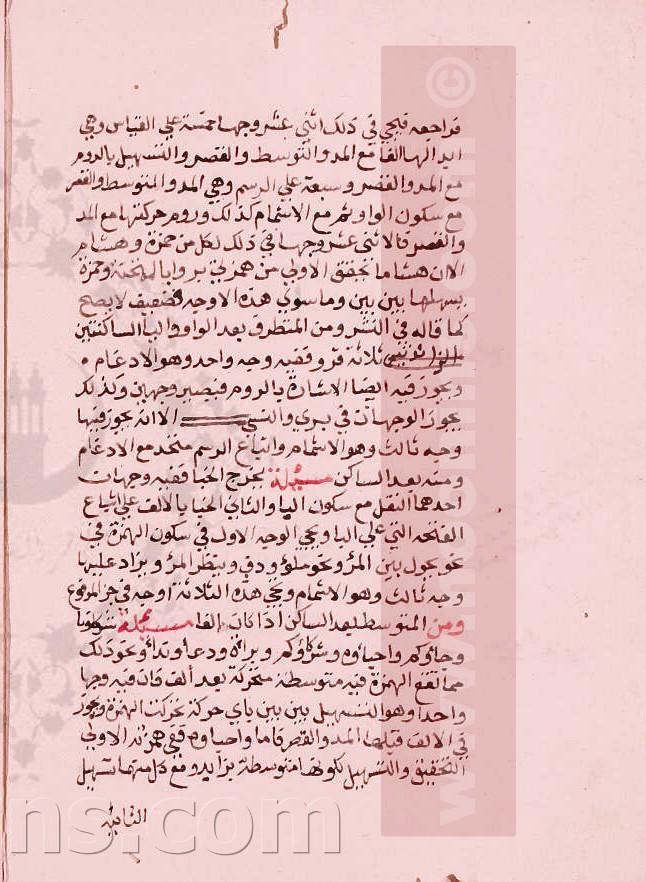 فراجعه فيجي في ذلك اثني عشر وجها خمسة علي القياس وهي
ابدالها الفا مع المد والتوسط والقصر والتسهيل بالروم
مع المد والقصر وسبعة علي الرسم وهي المد والتوسط والقصر
مع سكون الواو ثم مع الاشمام كذلك وروم حركتها مع المد
والقصر فالاثني عشر وجها في ذلك لكل من حمزة وهشام
الا ان هشاما يحقق الاولي من همزتي بروايا وحمزة
يسهلها بين بين وما سوي هذه الاوجه فضعيف لا يصح
كما قاله في النشر ومن المتطرق بعد الواو واليا الساكنتين
ثلاثة قرو ففيه وجه واحد وهو الادغام
ويجوز فيه ايضا الاشارة بالروم فيصير وجهين وكذلك
يجوز الوجهات في بري والنسي الا انه يجوز فيها
وجه ثالث وهو الاشمام واتباع الرسم متحد مع الادغام
ومنه بعد الساكن مسئلة يخرج الخبا ففيه وجهات
احدهما النقل مع سكون البا والثاني الخبا بالالف علي اشباع
الفتحه التي علي البا ويجي الوجه الاول في سكون الهمزة في
نحو يحول بين المرؤ ونحو ملؤ ودف وينظر المرؤ ويزاد عليها
وجه ثالث وهو الاشمام وتجي هذه الثلاثة اوجه في جز المرفوع
ومن المتوسط بعد الساكن اذا كان الفا مسئلة
وجاؤكم واحباوه وشركاؤكم وبراة ودعا وندا ونحو ذلك
مما تقع الهمزة فيه متوسطة متحركة بعد الف فان فيه وجها
واحدا وهو التسهيل بين بين باي حركة تحركت الهمزة ويجوز
في الالف قبلها المد والقصر فاما واحباوه ففي همزته الاولي
التحقيق والتسهيل لكونها متوسطة بزايد ومع كل منهما تسهيل
الثانية
ns.com
©